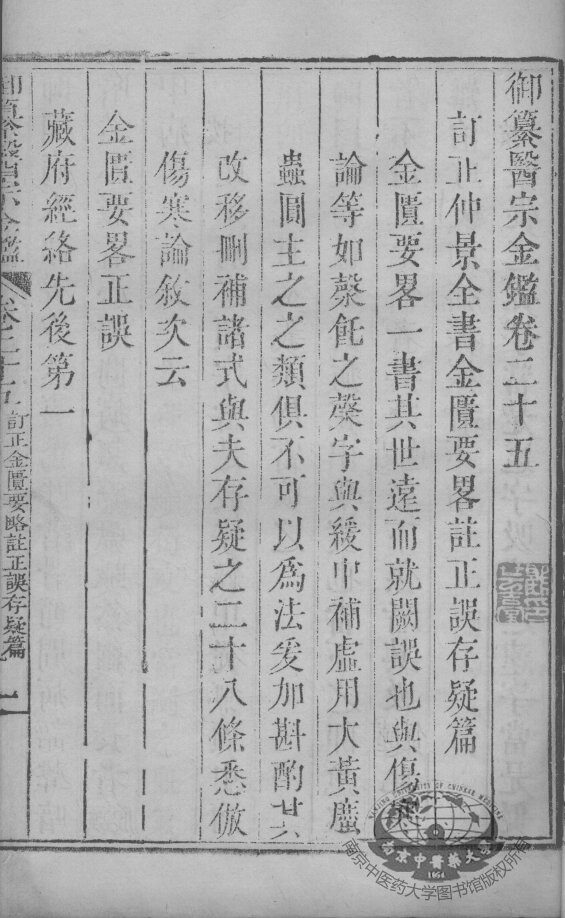 御纂醫宗金鑑卷二十五
訂正仲景全書金匱要畧註正誤存疑篇
金匱要畧一書其世遠而就闕誤也與傷寒
論等如槩飥之槩字與緩中補虛用大黃䗪
蟲圓主之之類俱不可以為法爰加斟酌其
改移刪補諸式與夫存疑之二十八條悉倣
傷寒論敘次云
金匱要畧正誤
藏府經絡先後第一
御纂醫宗金鑑 卷二十五 訂正金匱要略註正誤存疑篇 一
NANJING UNIVERSITY OF CHINESE MEDICINE
南京中醫藥大學
1954
南京中医药大学图书馆版权所有